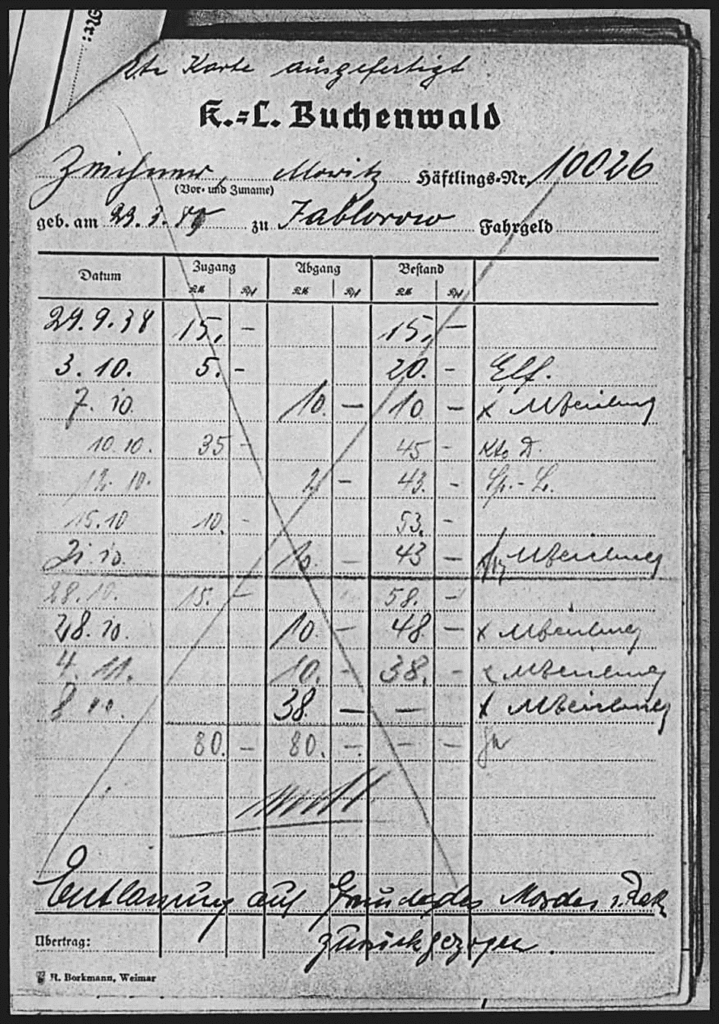 Karte ausgefertigt
K.=L. Buchenwald
Zeichner, Moritz Häftlings-Nr. 10026
(Vor- und Zuname)
geb. am 22.3.89 zu Jablonow Fahrgeld
Datum Zugang Abgang Bestand
RM Rpf RM Rpf RM Rpf
29.9.38 15,- 15,-
3.10. 5.- 20.-
7.10. 10.- 10.- x
10.10. 35- 45- Kto D.
12.10. 2.- 43.-
15.10 10.- 53.-
21.10. 10.- 43-
28.10. 15.- 58.-
28.10. 10.- 48- x
4.11. 10.- 38.- x
8.11. 38.- - x
80.- 80.- - -
Entlassung auf Grund des Mordes
zurückgezogen.
Übertrag:
R. Borkmann, Weimar